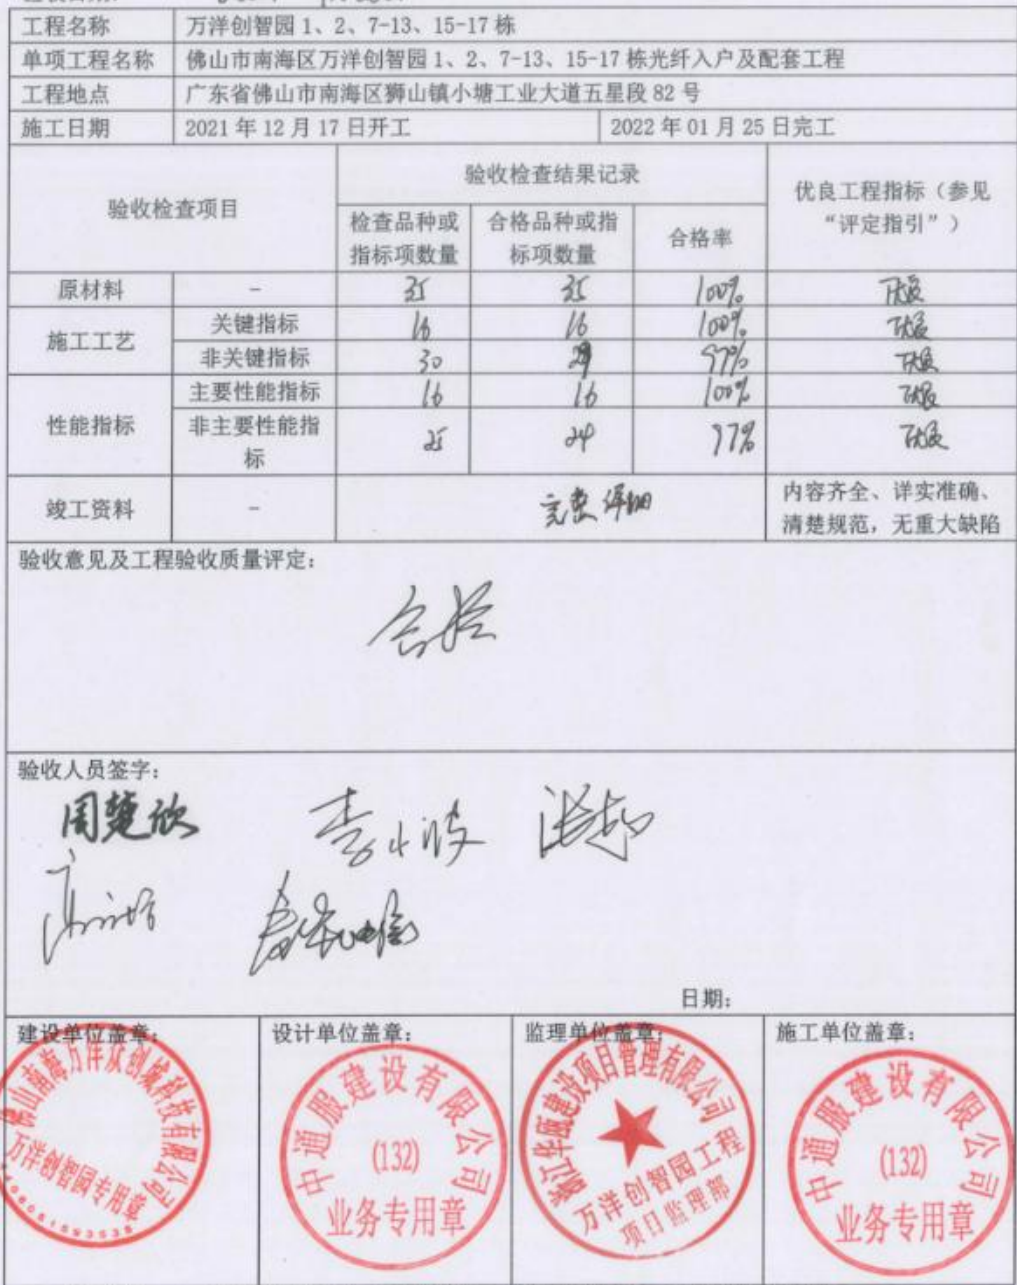 工程名称 万洋创智园 1、2、7-13、15-17 栋
单项工程名称 佛山市南海区万洋创智园 1、2、7-13、15-17 栋光纤入户及配套工程
工程地点 广东省佛山市南海区狮山镇小塘工业大道五星段 82 号
施工日期 2021 年 12 月 17 日开工 2022 年 01 月 25 日完工
验收检查项目 验收检查结果记录 优良工程指标（参见“评定指引”）
检查品种或指标项数量 合格品种或指标项数量 合格率
原材料 - 35 35 100%
施工工艺 关键指标 16 16 100%
非关键指标 30 29 97%
性能指标 主要性能指标 16 16 100%
非主要性能指标 25 24 97%
竣工资料 - 完整 详细 内容齐全、详实准确、清楚规范，无重大缺陷
验收意见及工程验收质量评定：
合格
验收人员签字：
周楚欣 李小波
日期：
建设单位盖章： 设计单位盖章： 监理单位盖章： 施工单位盖章：
佛山南海万洋众创城科技有限公司
万洋创智园专用章
中通服建设有限公司
(132)
业务专用章
浙江华瓯建设项目管理有限公司
万洋创智园工程
项目监理部
中通服建设有限公司
(132)
业务专用章